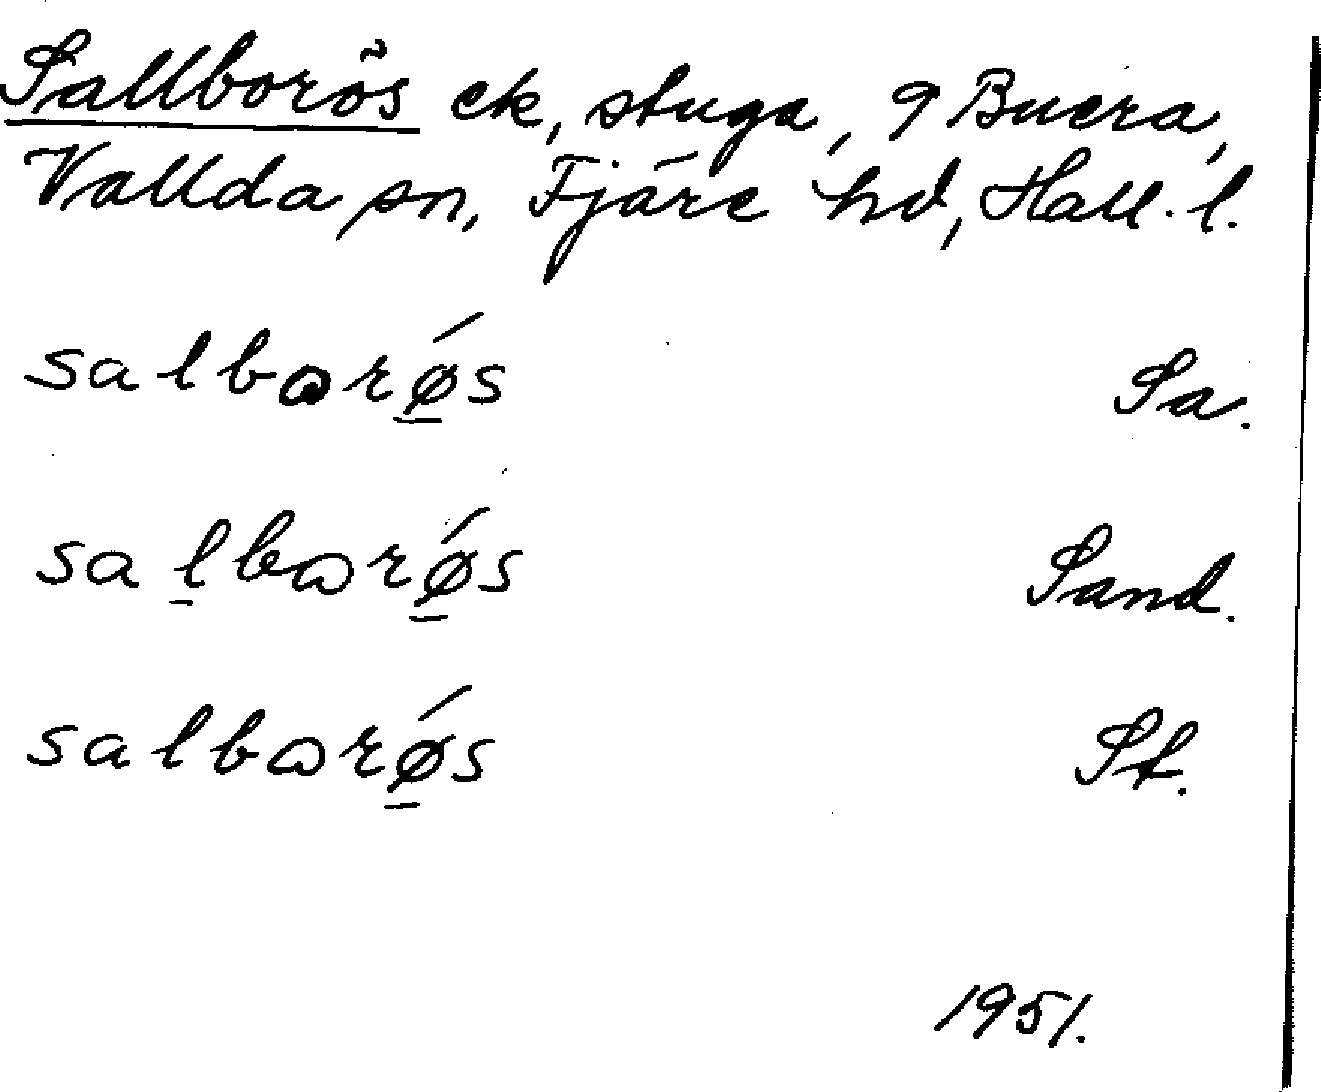 Sallborös ek, stuga, 9 Buera,
Vallda sn, Fjäre hd, Hall. l.
salbɷrǿ̱s Sa.
sa ḻbɷrǿ̱s Sand.
salbɷrǿ̱s St.
1951.